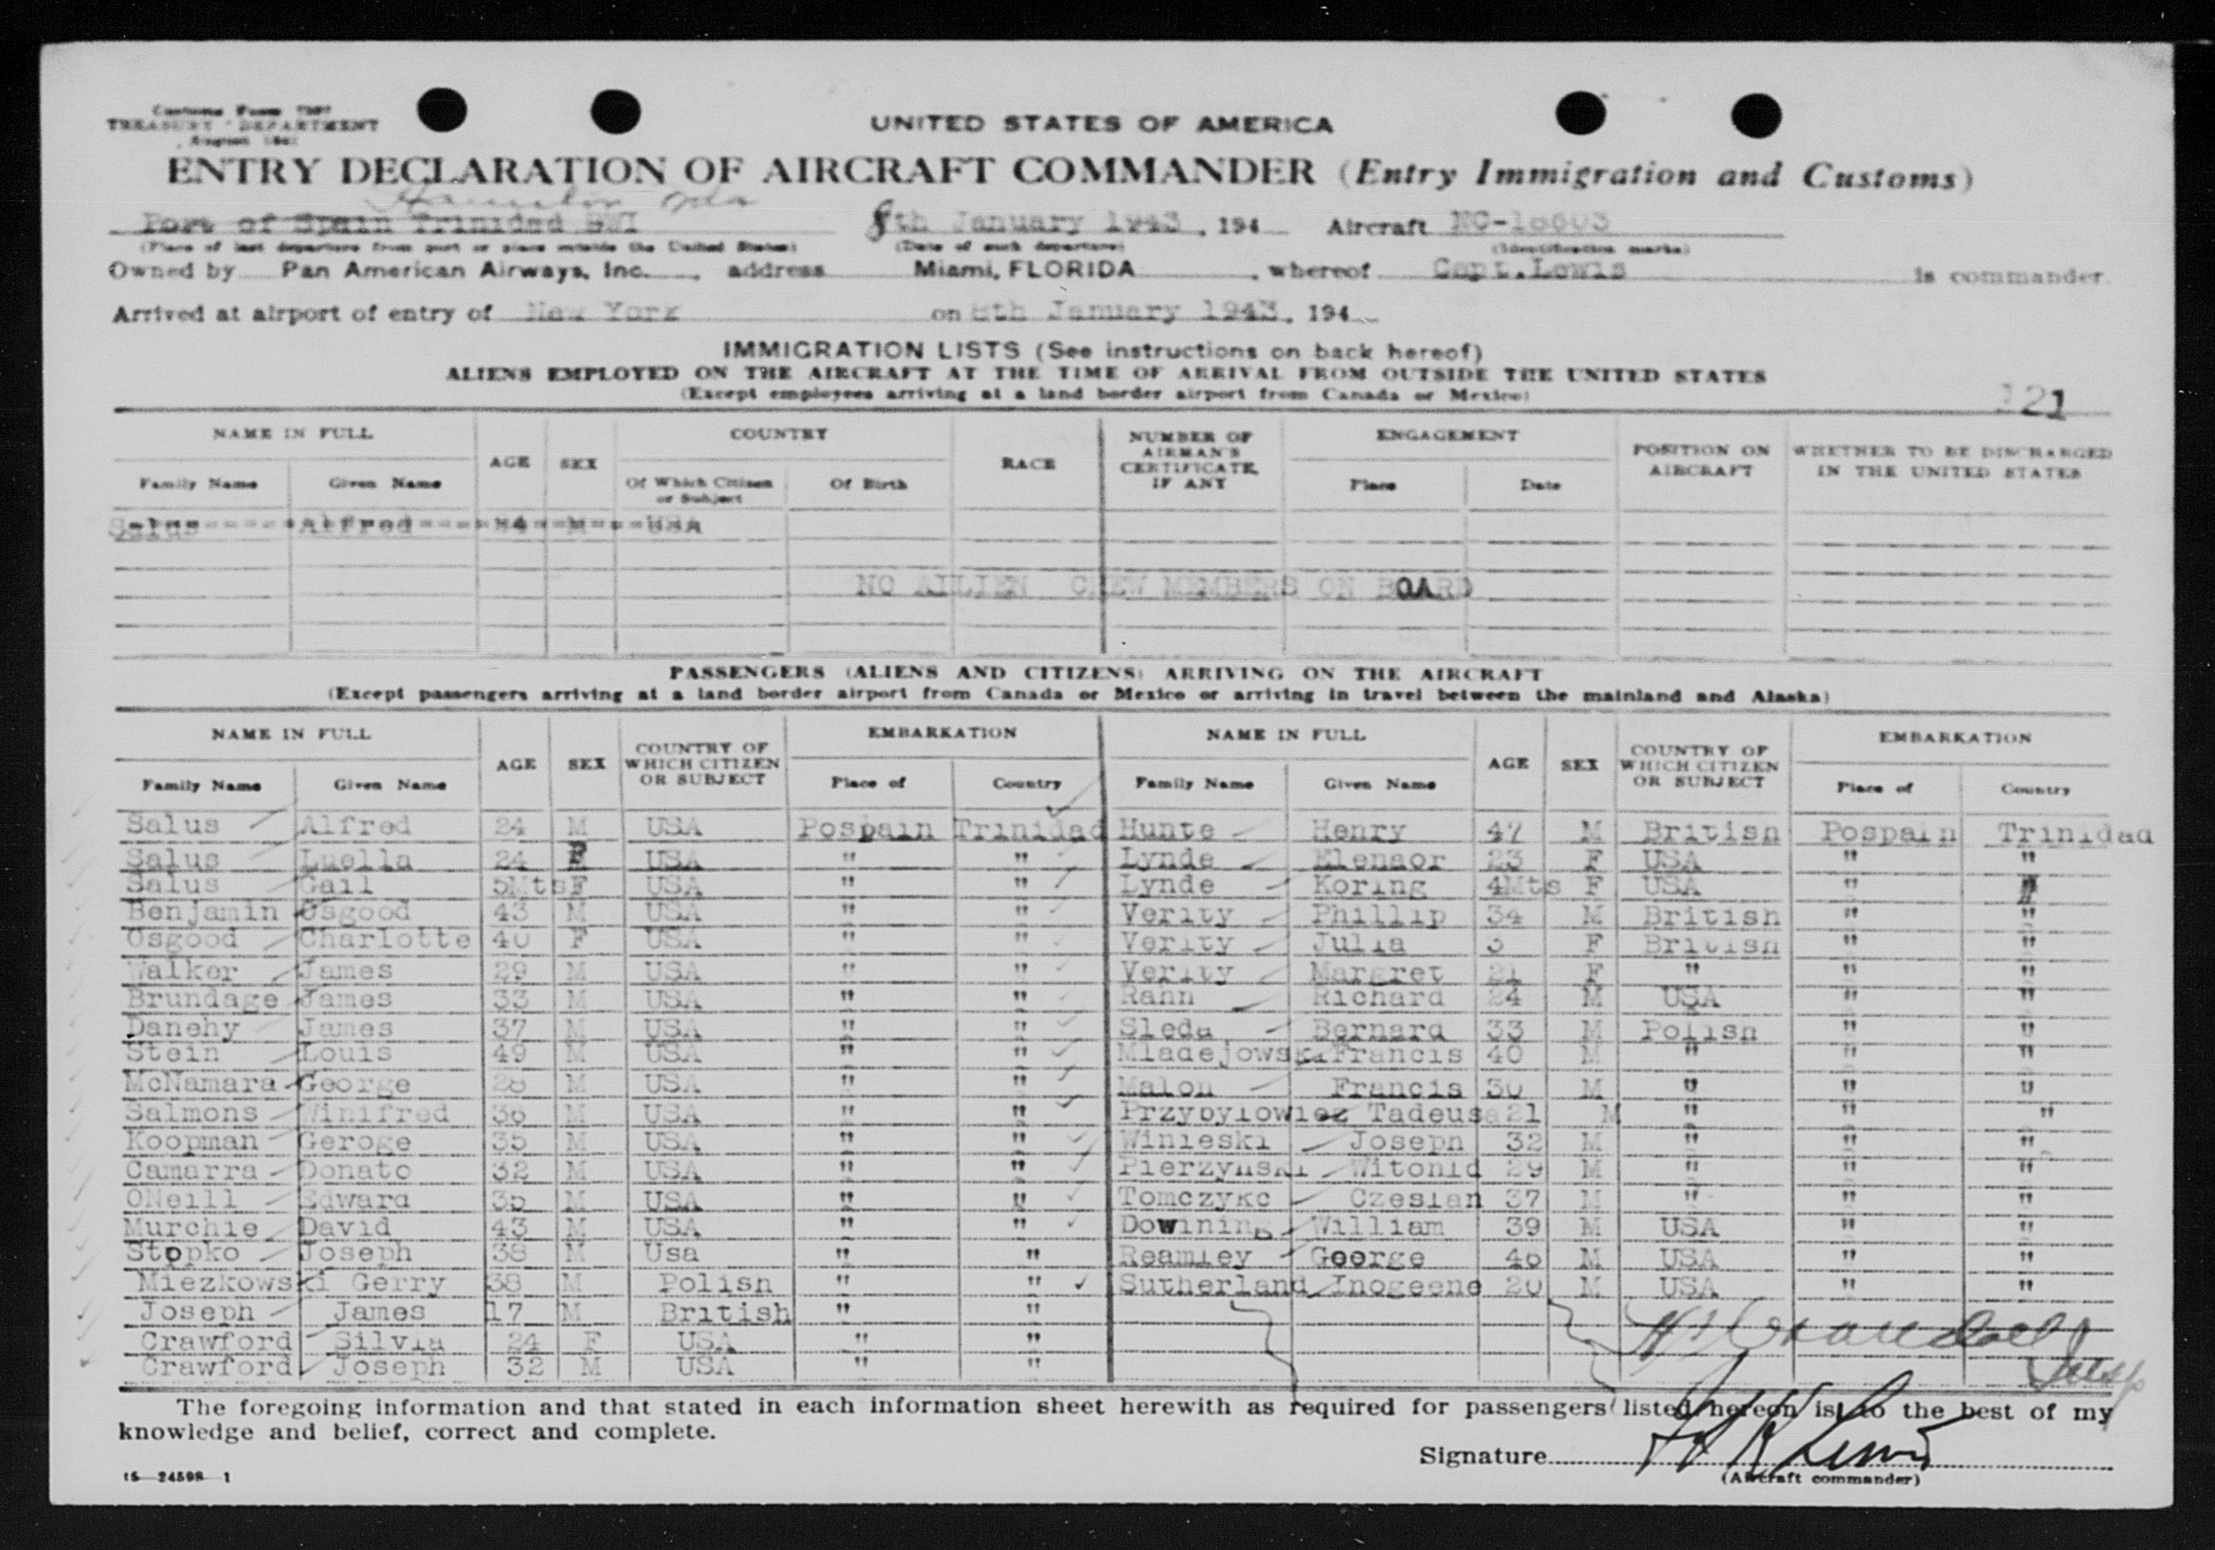 Customs Form 7507
TREASURY DEPARTMENT
August 1941
UNITED STATES OF AMERICA
ENTRY DECLARATION OF AIRCRAFT COMMANDER (Entry Immigration and Customs)
Port of Spain Trinidad BWI 8th January 1943, 194 Aircraft NC-18603
(Place of last departure from port or place outside the United States) (Date of such departure) (Identification marks)
Owned by Pan American Airways, Inc., address Miami, FLORIDA, whereof Capt.Lewis is commander.
Arrived at airport of entry of New York on 8th January 1943, 194
IMMIGRATION LISTS (See instructions on back hereof)
ALIENS EMPLOYED ON THE AIRCRAFT AT THE TIME OF ARRIVAL FROM OUTSIDE THE UNITED STATES
(Except employees arriving at a land border airport from Canada or Mexico)
121
NAME IN FULL AGE SEX COUNTRY RACE NUMBER OF AIRMAN'S CERTIFICATE, IF ANY ENGAGEMENT POSITION ON AIRCRAFT WHETHER TO BE DISCHARGED IN THE UNITED STATES
Family Name Given Name Of Which Citizen or Subject Of Birth Place Date
Salus Alfred 24 M USA
NO AILIEN CREW MEMBERS ON BOARD
PASSENGERS (ALIENS AND CITIZENS) ARRIVING ON THE AIRCRAFT
(Except passengers arriving at a land border airport from Canada or Mexico or arriving in travel between the mainland and Alaska)
NAME IN FULL AGE SEX COUNTRY OF WHICH CITIZEN OR SUBJECT EMBARKATION NAME IN FULL AGE SEX COUNTRY OF WHICH CITIZEN OR SUBJECT EMBARKATION
Family Name Given Name Place of Country Family Name Given Name Place of Country
Salus Alfred 24 M USA Pospain Trinidad Hunte Henry 47 M British Pospain Trinidad
Salus Luella 24 F USA " " Lynde Elenaor 23 F USA " "
Salus Gail 5Mts F USA " " Lynde Koring 4Mts F USA " "
Benjamin Osgood 43 M USA " " Verity Phillip 34 M British " "
Osgood Charlotte 40 F USA " " Verity Julia 3 F British " "
Walker James 29 M USA " " Verity Margret 21 F " " "
Brundage James 33 M USA " " Rahn Richard 24 M USA " "
Danehy James 37 M USA " " Sleda Bernard 33 M Polish " "
Stein Louis 49 M USA " " Mladejowski Francis 40 M " " "
McNamara George 28 M USA " " Malon Francis 30 M " " "
Salmons Winifred 36 M USA " " Przybylowiez Tadeusa 21 M " " "
Koopman Geroge 35 M USA " " Winieski Joseph 32 M " " "
Camarra Donato 32 M USA " " Pierzynski Witonld 29 M " " "
ONeill Edward 35 M USA " " Tomczykc Czeslan 37 M " " "
Murchie David 43 M USA " " Dowining William 39 M USA " "
Stopko Joseph 38 M Usa " " Reamley George 46 M USA " "
Miezkowski Gerry 38 M Polish " " Sutherland Inogeene 20 M USA " "
Joseph James 17 M British " "
Crawford Silvia 24 F USA " "
Crawford Joseph 32 M USA " "
Insp
The foregoing information and that stated in each information sheet herewith as required for passengers listed hereon is to the best of my
knowledge and belief, correct and complete.
Signature
(Aircraft commander)
16—24598-1